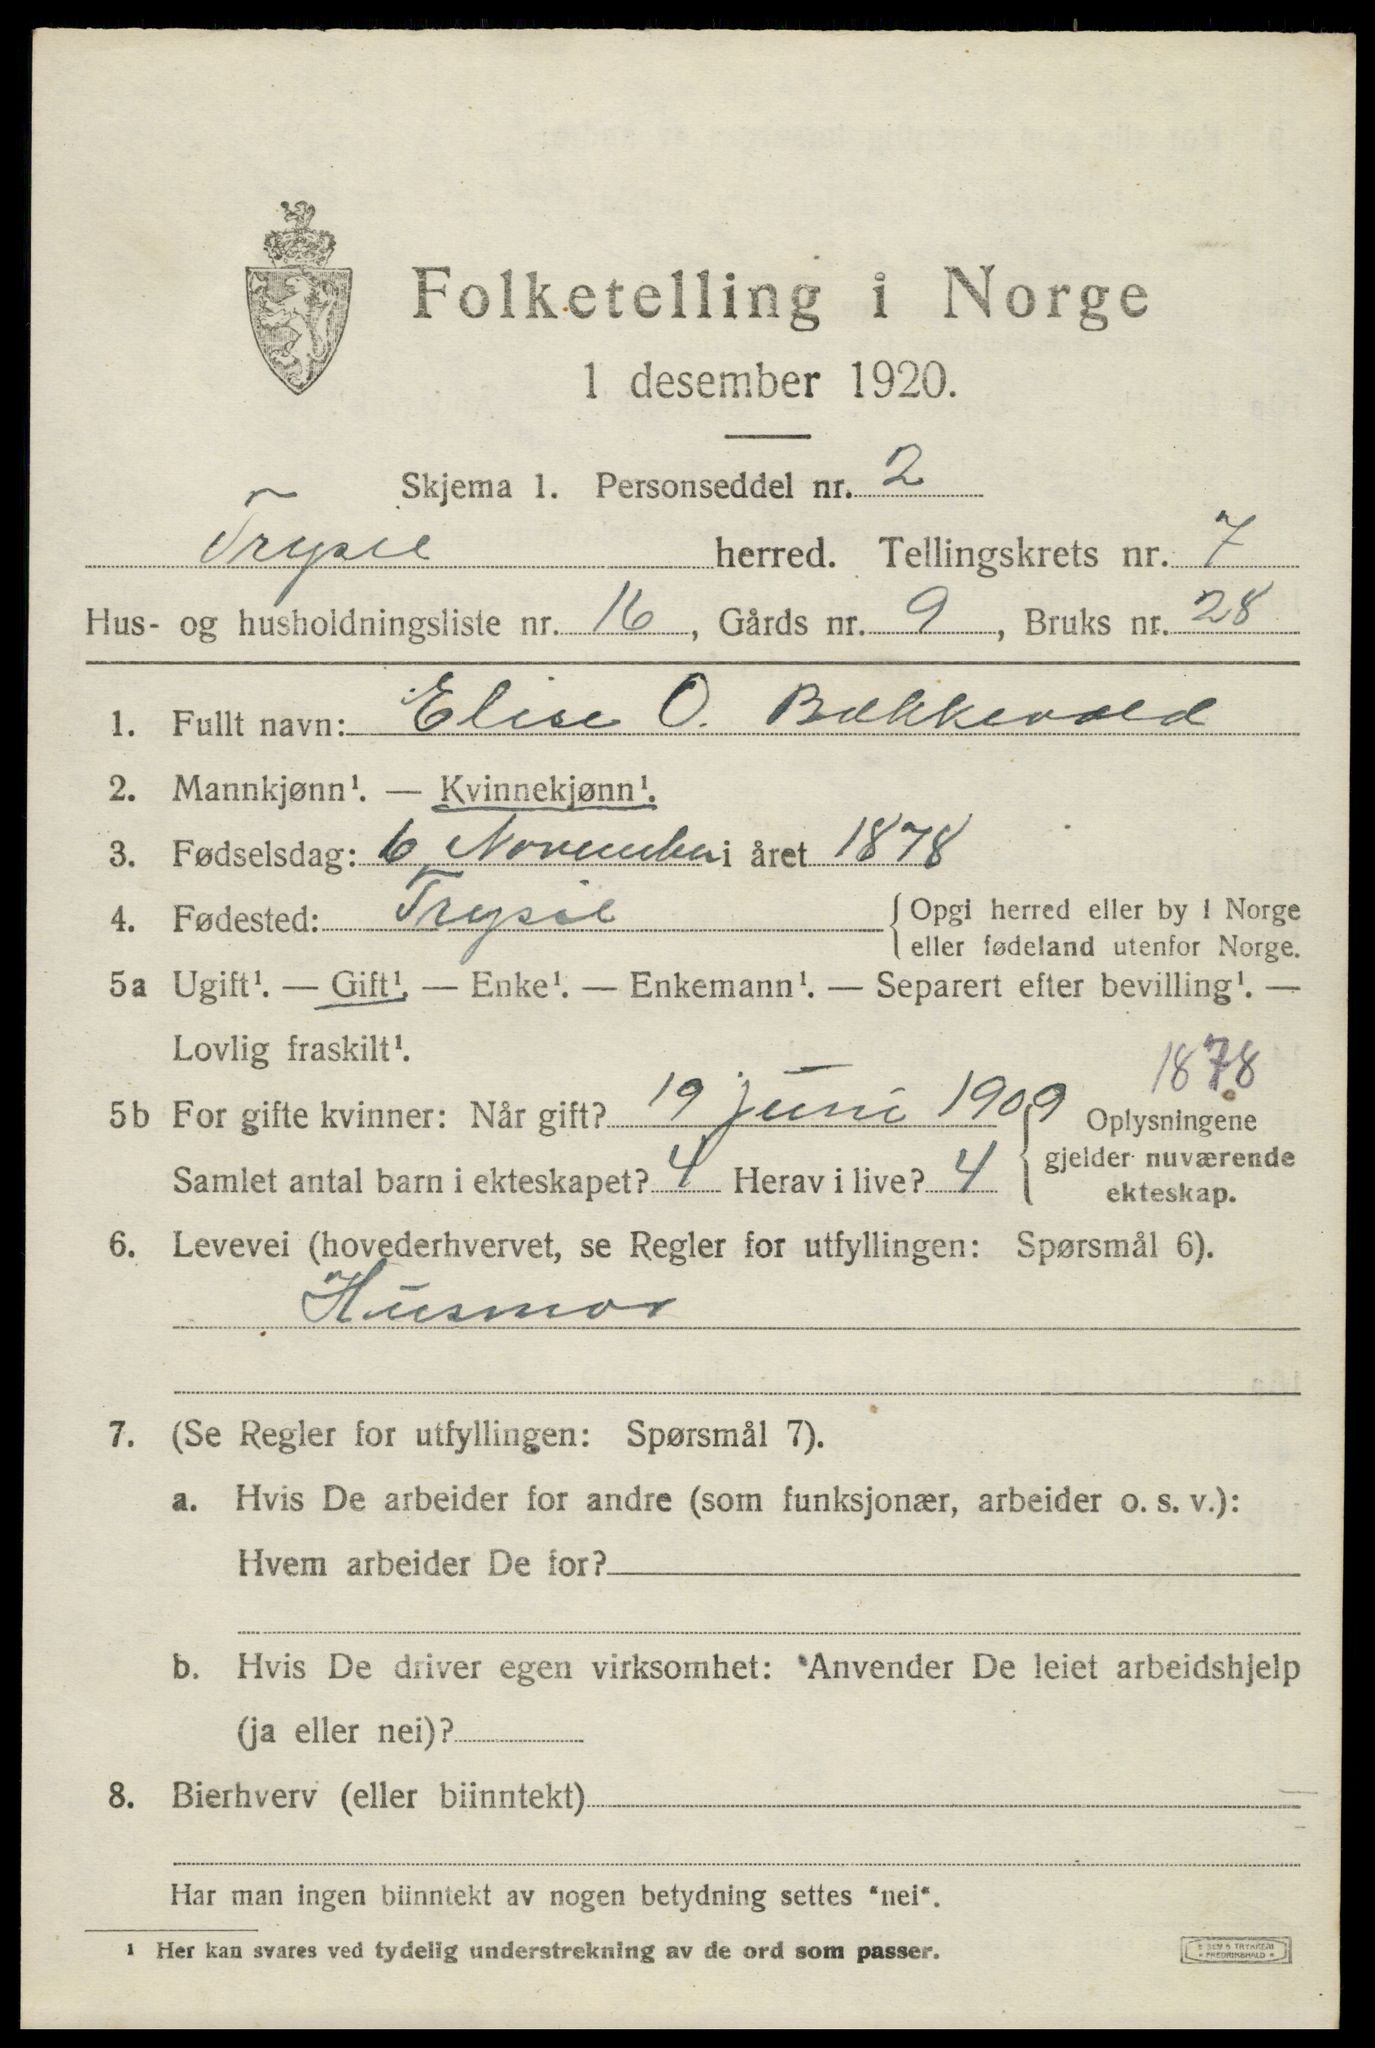 Folketelling i Norge
1 desember 1920.
Skjema 1. Personseddel nr. 2
Trysil herred. Tellingskrets nr. 7
Hus- og husholdningsliste nr. 16, Gårds nr. 9, Bruks nr. 28
1. Fullt navn: Elise O. Bækkevold
2. Mannkjønn¹. — Kvinnekjønn¹.
3. Fødselsdag: 6 November i året 1878
4. Fødested: Trysil
{Opgi herred eller by i Norge
eller fødeland utenfor Norge.
5a Ugift¹. — Gift¹. — Enke¹. — Enkemann¹. — Separert efter bevilling¹. —
Lovlig fraskilt¹.
1878
5b For gifte kvinner: Når gift? 19 juni 1909
Samlet antal barn i ekteskapet? 4 Herav i live? 4
{Oplysningene
gjelder nuværende
ekteskap.
6. Levevei (hovederhvervet, se Regler for utfyllingen: Spørsmål 6).
Husmor
7. (Se Regler for utfyllingen: Spørsmål 7).
a. Hvis De arbeider for andre (som funksjonær, arbeider o. s. v.):
Hvem arbeider De for?
b. Hvis De driver egen virksomhet: Anvender De leiet arbeidshjelp
(ja eller nei)?
8. Bierhverv (eller biinntekt)
Har man ingen biinntekt av nogen betydning settes "nei".
¹ Her kan svares ved tydelig understrekning av de ord som passer.
TRYKKERI
FREDRIKSHALD